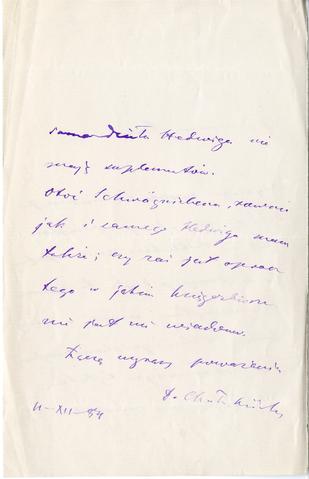 same dzieła Hedwiga nie
mają suplementów.
Otóż Schwägrichena, zarówno
jak i samego Hedwiga mam
także; czy zaś jest oprócz
tego w jakim
nie jest mi wiadomo.
Łączę wyrazy poważania
11-XII-94